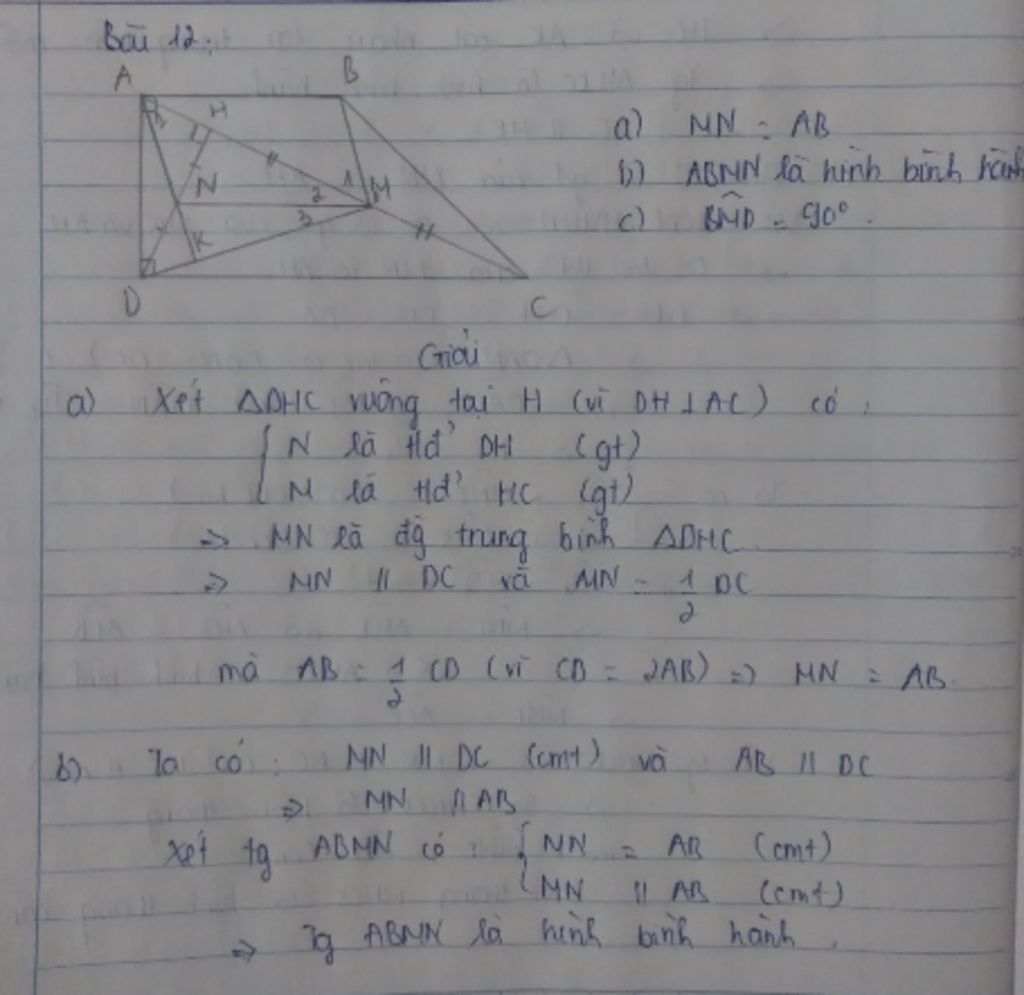 Bài 12:
A B
H
a) MN = AB
b) ABMN là hình bình hành
c) BMD = 90°.
1
2 M
N
3
K
D C
Giải
a) Xét ΔDHC vuông tại H (vì DH ⊥ AC) có:
{ N là tđ' DH (gt)
M là tđ' HC (gt)
=> MN là đg trung bình ΔDHC
=> MN // DC và MN = 1/2 DC
mà AB = 1/2 CD (vì CD = 2AB) => MN = AB.
b) Ta có: MN // DC (cmt) và AB // DC
=> MN // AB
Xét tg ABMN có { MN = AB (cmt)
MN // AB (cmt)
=> Tg ABMN là hình bình hành.